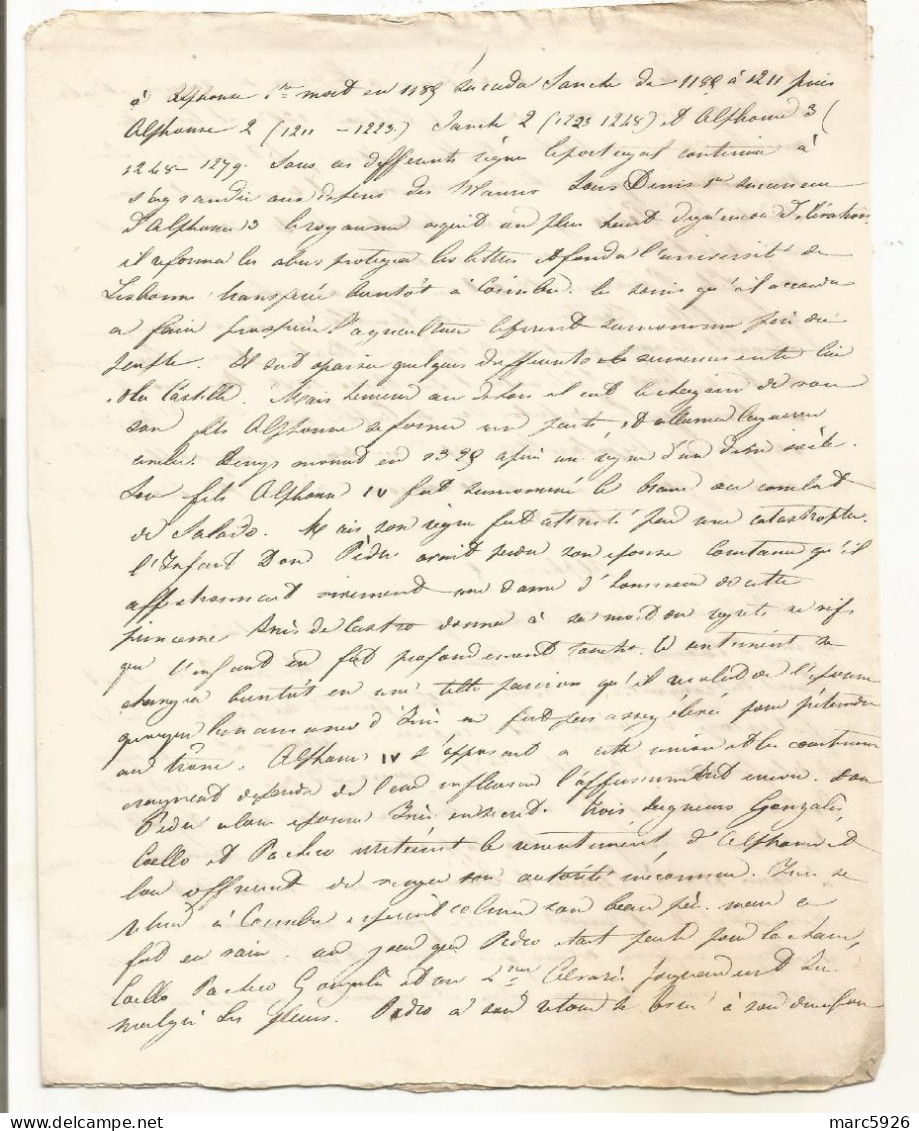 à Alphonse 1er mort en 1185 succeda Sanche de 1185 à 1211 puis
Alphonse 2 (1211 - 1223.) Sanche 2 (1223 1248) et Alphonse 3 (
1248 - 1279. Sous ces differents règnes le portugal continua à
s'agrandir aux depens des Maures Sous Denis 1er successeur
d'Alphonse 3 le royaume acquit un plus haut degré encore d'élévation
il reforma les abus protegea les lettres et fonda l'université de
Lisbonne transferée bientôt à Coimbre. les soins qu'il accorda
a faire prosperer l'agriculture le firent surnommer père du
peuple. Il eut apaiser quelques differents survenus entre lui
et la Castille. Mais heureux au dehors il eut le chagrin de voir
son fils Alphonse se former un parti, et allumer la guerre
civile. Denys mourut en 1325 après un règne d'un demi siècle.
Son fils Alphonse IV fut surnommé le brave au combat
de Salado. Mais son règne fut attristé par une catastrophe.
l'Infant Don Pèdre avait perdu son epouse Constance qu'il
affectionnait vivement une dame d'honneur de cette
princesse Inès de Castro donna à sa mort des regrets si vifs
que l'infant en fut profondement touché. Ce sentiment se
changea bientôt en une telle passion qu'il voulut l'epouser
quoique la naissance d'Inès ne fut pas assez élevée pour prétendre
au trône. Alphonse IV s'opposait a cette union et les courtisans
craignant de perdre de leur influence l'affermissaient encore. Don
Pèdre alors epousa Inès en secret. trois seigneurs Gonzalès,
Coello et Pacheco excitèrent le ressentiment d'Alphonse et
lui offrirent de venger son autorité méconnue. Inès se
rend à Coimbre esperant calmer son beau père. mais ce
fut en vain. un jour que Pèdro était parti pour la chasse,
Coello Pacheco Gonzalès et un 4eme Alvarès poignardent Inès
malgré ses pleurs. Pèdro a son retour se livre à son desespoir